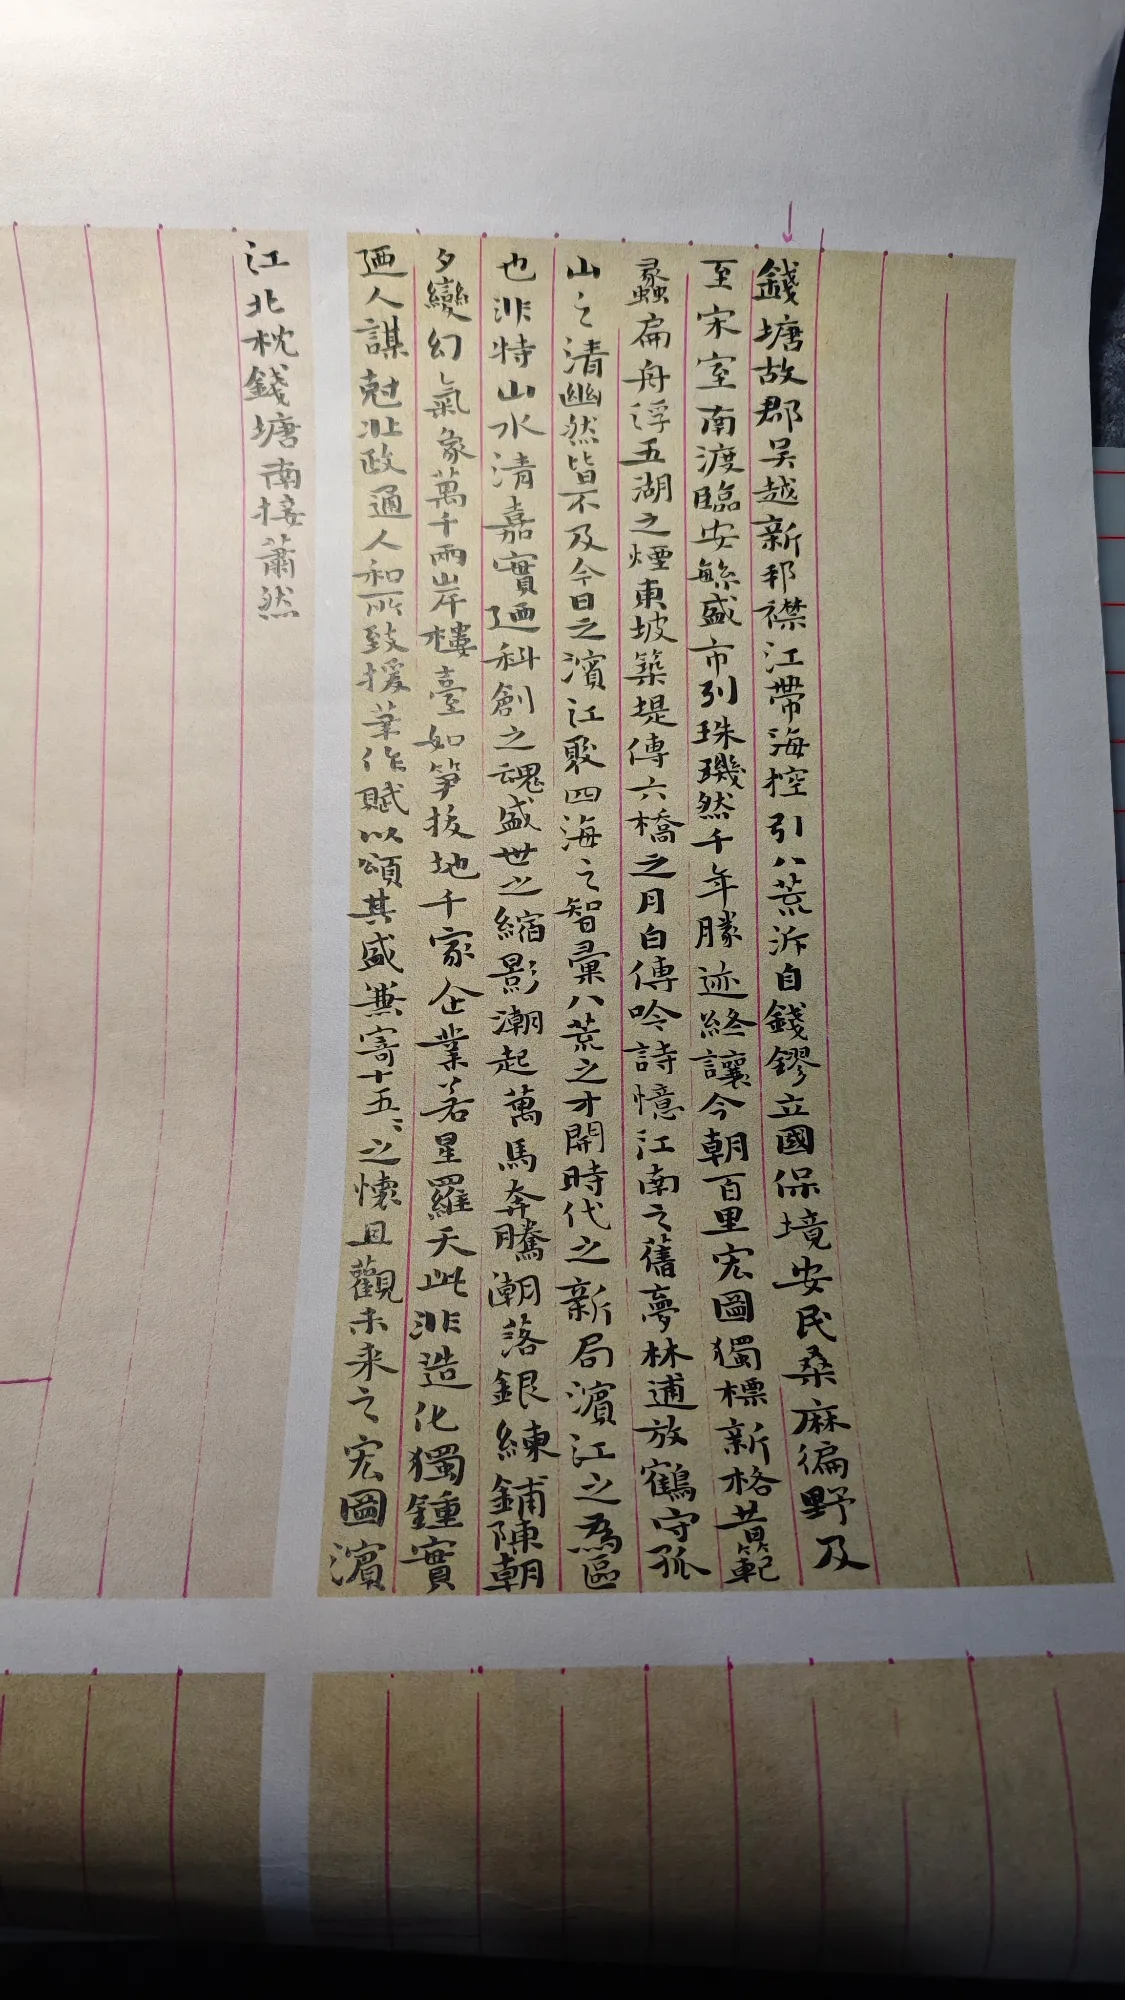 錢塘故郡吴越新邦襟江帶海控引八荒泝自錢鏐立國保境安民桑麻徧野及
至宋室南渡臨安緐盛市列珠璣然千年勝迹終讓今朝百里宏圖獨標新格昔范
蠡扁舟浮五湖之煙東坡築堤傳六橋之月白傅吟詩憶江南之舊夢林逋放鶴守孤
山之清幽然皆不及今日之濱江聚四海之智彙八荒之才開時代之新局濱江之為區
也非特山水清嘉實迺科創之魂盛世之縮影潮起萬馬奔騰潮落銀練鋪陳朝
夕變幻氣象萬千兩岸樓臺如笋拔地千家企業若星羅天此非造化獨鍾實
迺人謀尅壯政通人和所致援筆作賦以頌其盛兼寄十五〻之懷且觀未来之宏圖濱
江北枕錢塘南接蕭然